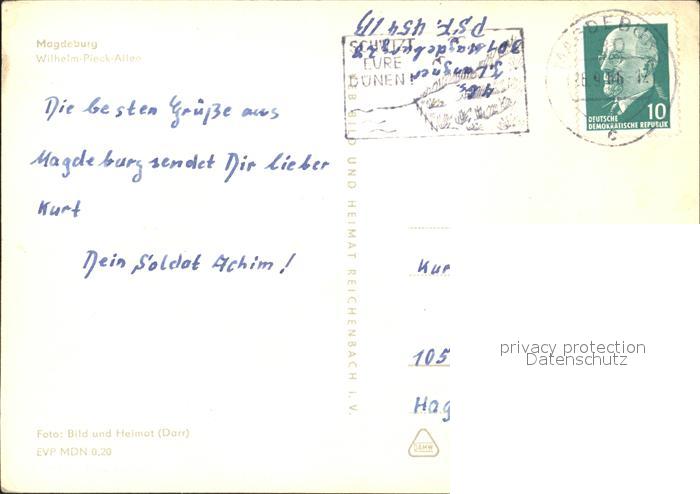 Magdeburg
Wilhelm-Pieck-Allee
Die besten Grüße aus
Magdeburg sendet Dir lieber
Kurt
Dein Soldat Achim!
Foto: Bild und Heimat (Darr)
EVP MDN 0,20
BILD UND HEIMAT REICHENBACH i. V.
J. Langner
301 Magdeburg
PSF. 454/
SCHÜTZT
EURE
DÜNEN!
MAGDEBURG
10
DEUTSCHE
DEMOKRATISCHE REPUBLIK
Kur
105
Hag
privacy protection
Datenschutz